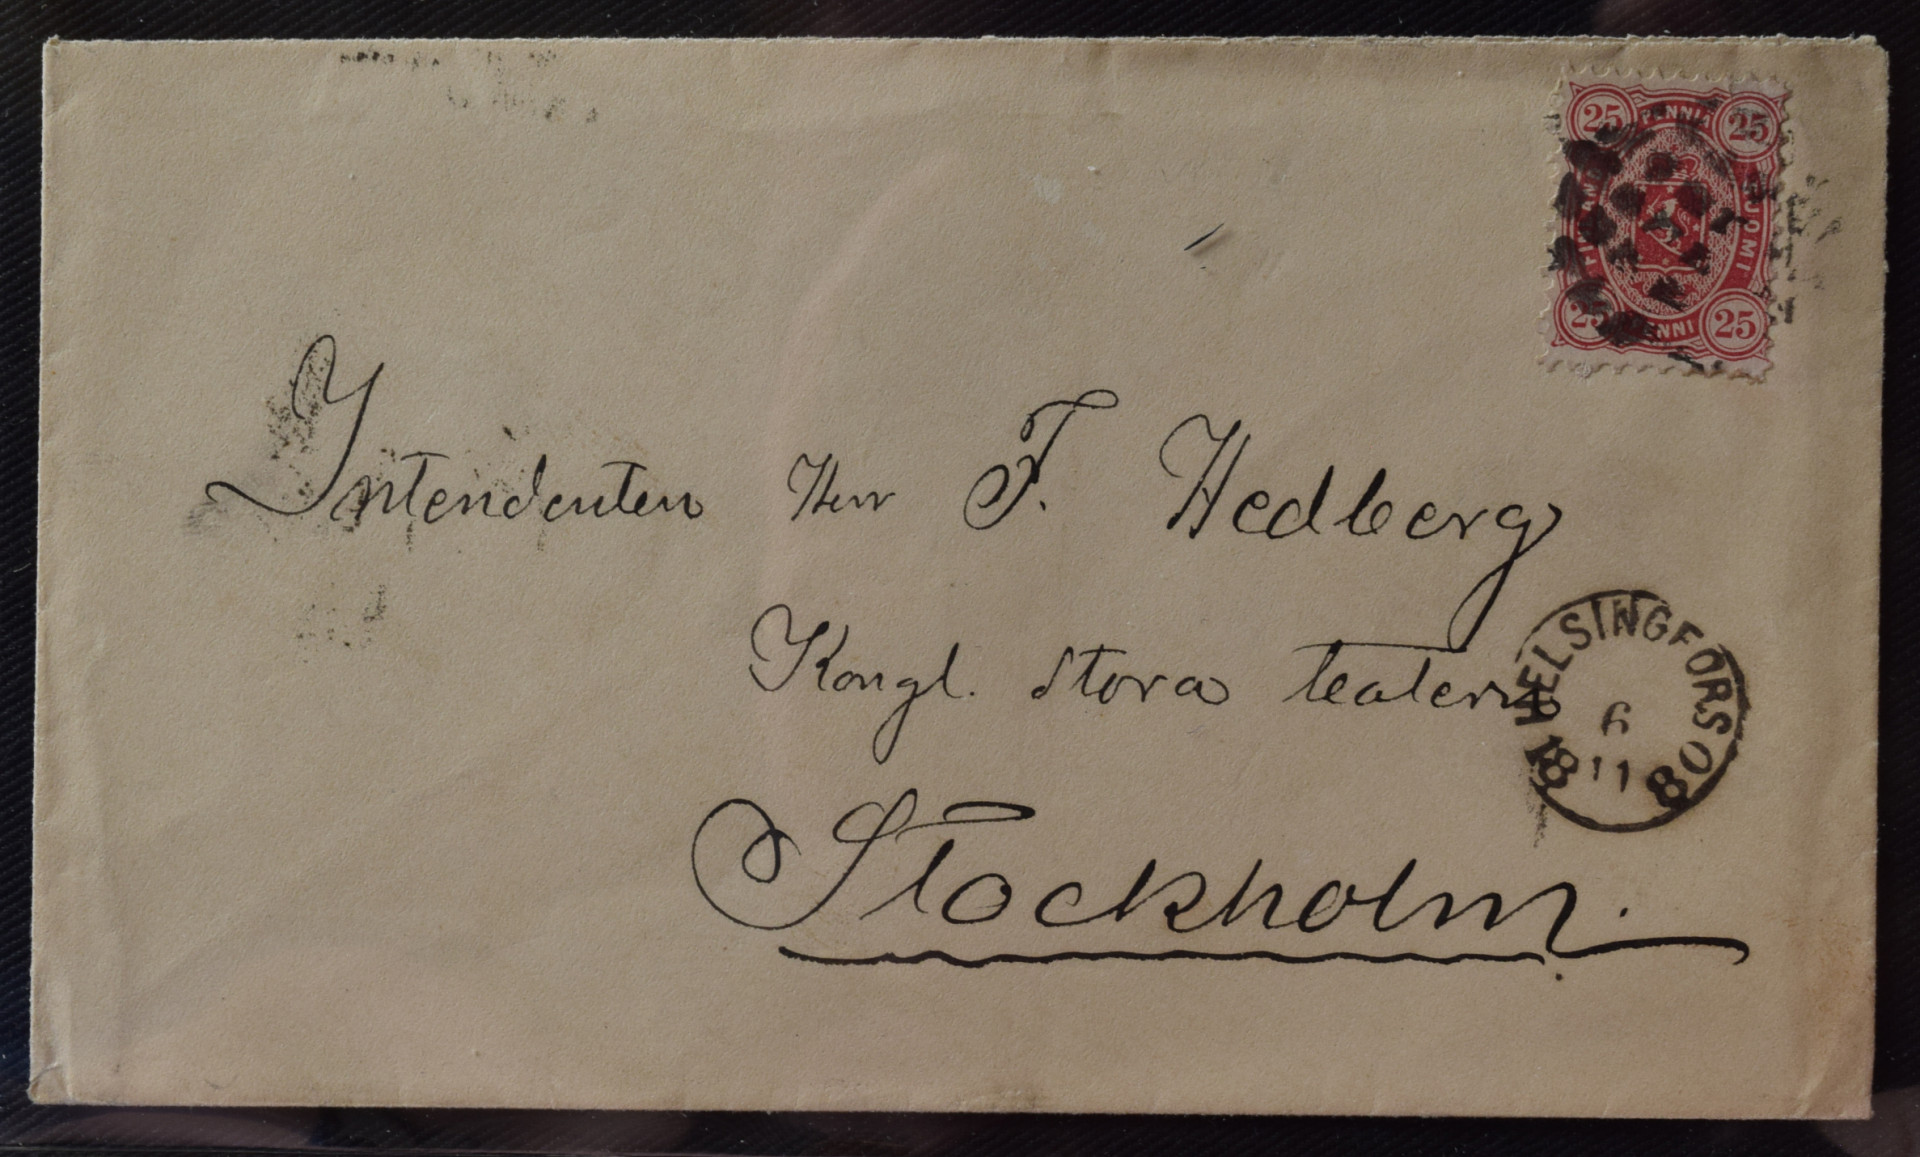 25 PENNIÄ 25
FINLAND SUOMI
25 PENNI 25
Intendenten Herr F. Hedberg
Kongl. Stora teatern
HELSINGFORS
6
18 11 80
Stockholm.